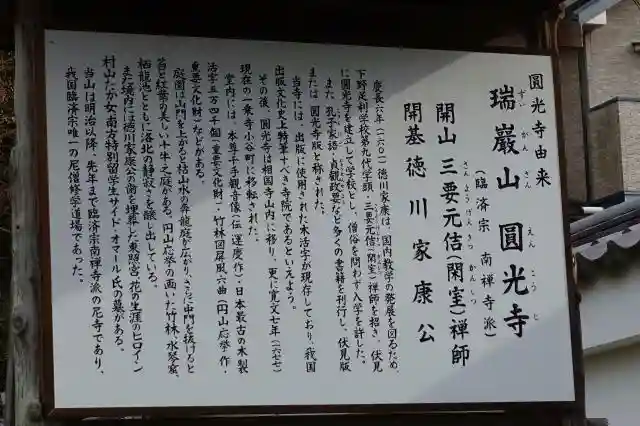 圓光寺由来
瑞巖山 圓光寺
ずい がん さん えん こう じ
(臨済宗 南禅寺派)
開山 三要元佶(閑室)禅師
さん よう げん きつ かん しつ
開基 徳川家康公
慶長六年(一六〇一)徳川家康は、国内教学の発展を図るため、
下野足利学校第九代学頭・三要元佶(閑室)禅師を招き、伏見
に圓光寺を建立して学校とし、僧俗を問わず入学を許した。
また、孔子家語・貞観政要など多くの書籍を刊行し、伏見版
または、圓光寺版と称された。
当寺には、出版に使用された木活字が現存しており、我国
出版文化史上特筆すべき寺院であるといえよう。
その後、圓光寺は相国寺山内に移り、更に寛文七年(一六六七)
現在の一乗寺小谷町に移転された。
堂内には、本尊千手観音像(伝 運慶作)・日本最古の木製
活字五万四千個(重要文化財)・竹林図屏風六曲(円山応挙作・
重要文化財)などがある。
庭園は山門を上がると枯山水の奔龍庭が広がり、さらに中門を抜けると
苔と紅葉の美しい十牛之庭がある。円山応挙の画いた竹林、水琴窟、
栖龍池とともに洛北の静寂さを醸し出している。
また境内には徳川家康公の歯を埋葬した東照宮、花の生涯のヒロイン
村山たか女、南方特別留学生サイド・オマール氏の墓がある。
当山は明治以降、先年まで臨済宗南禅寺派の尼寺であり、
我国臨済宗唯一の尼僧修学道場であった。